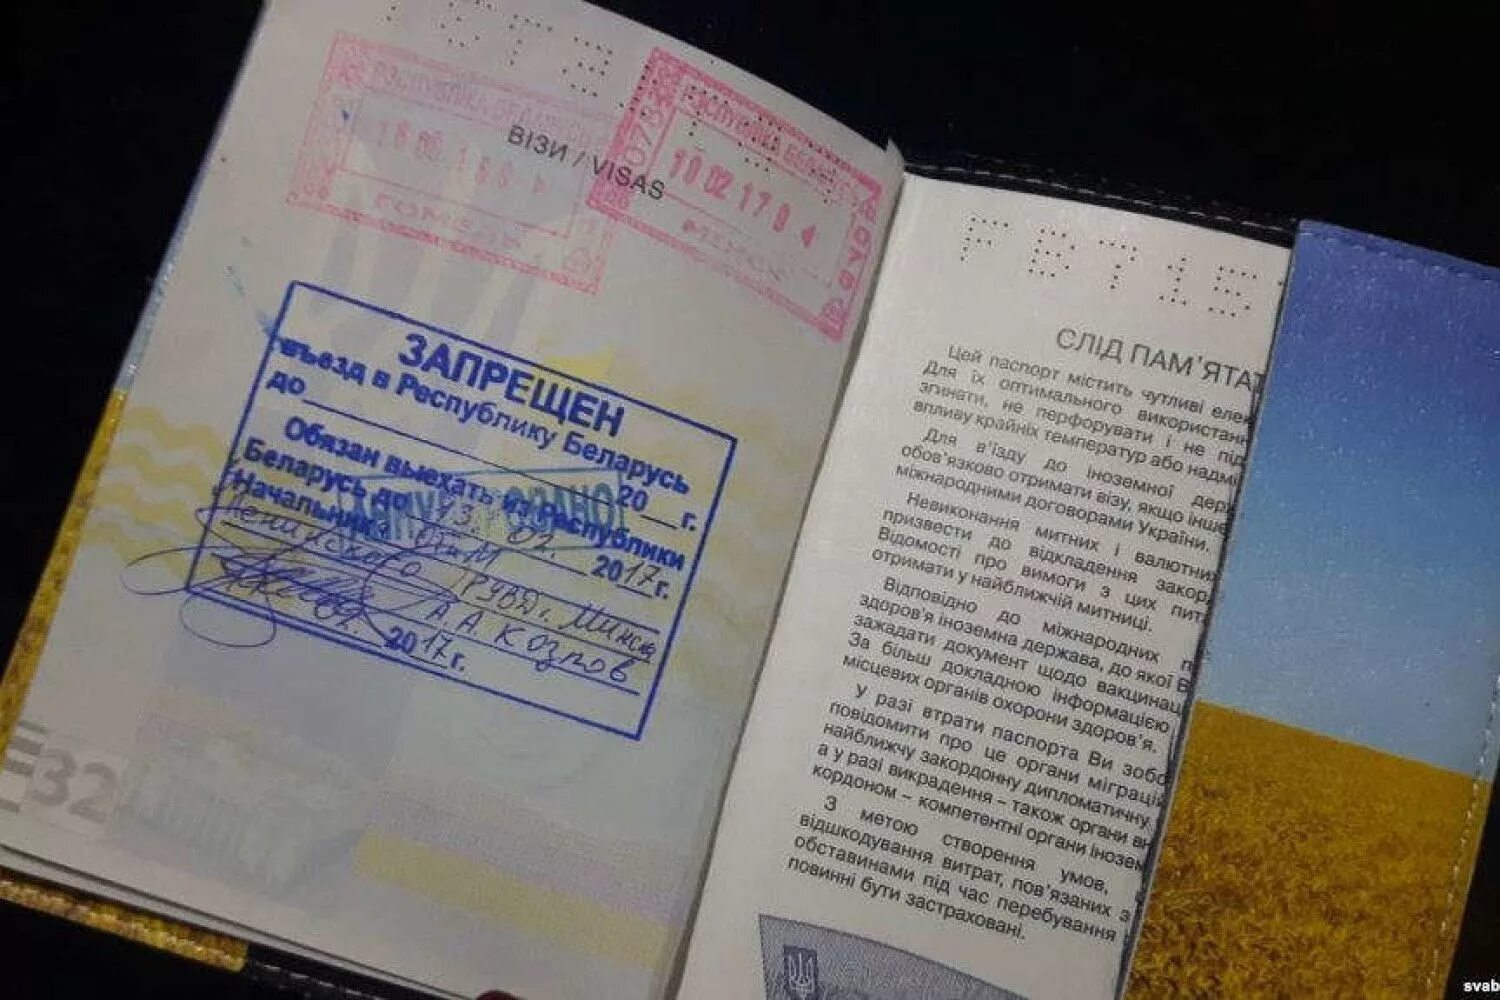 РЕСПУБЛИКА БЕЛАРУСЬ
ГОМЕЛЬ
РЕСПУБЛИКА БЕЛАРУСЬ
10 02 17 04
МИНСК
ВІЗИ / VISAS
ЗАПРЕЩЕН
въезд в Республику Беларусь
до 20 г.
Обязан выехать из Республики
Беларусь до 13 02. 2017 г.
Начальник ОГиМ
Ленинского РУВД г. Минска
А.А. Козлов
02. 2017 г.
АНУЛЬОВАНО
32
СЛІД ПАМ'ЯТАТ
Цей паспорт містить чутливі елек
Для їх оптимального використанн
згинати, не перфорувати і не під
впливу крайніх температур або надмі
Для в'їзду до іноземної держ
обов'язково отримати візу, якщо інше
міжнародними договорами України.
Невиконання митних і валютних
призвести до відкладення закор
Відомості про вимоги з цих пита
отримати у найближчій митниці.
Відповідно до міжнародних п
здоров'я іноземна держава, до якої В
зажадати документ щодо вакцинац
За більш докладною інформацією
місцевих органів охорони здоров'я.
У разі втрати паспорта Ви зобо
повідомити про це органи міграцій
найближчу закордонну дипломатичну
а у разі викрадення – також органи вн
кордоном – компетентні органи інозем
З метою створення умов,
відшкодування витрат, пов'язаних з
обставинами під час перебування
повинні бути застраховані.
svab